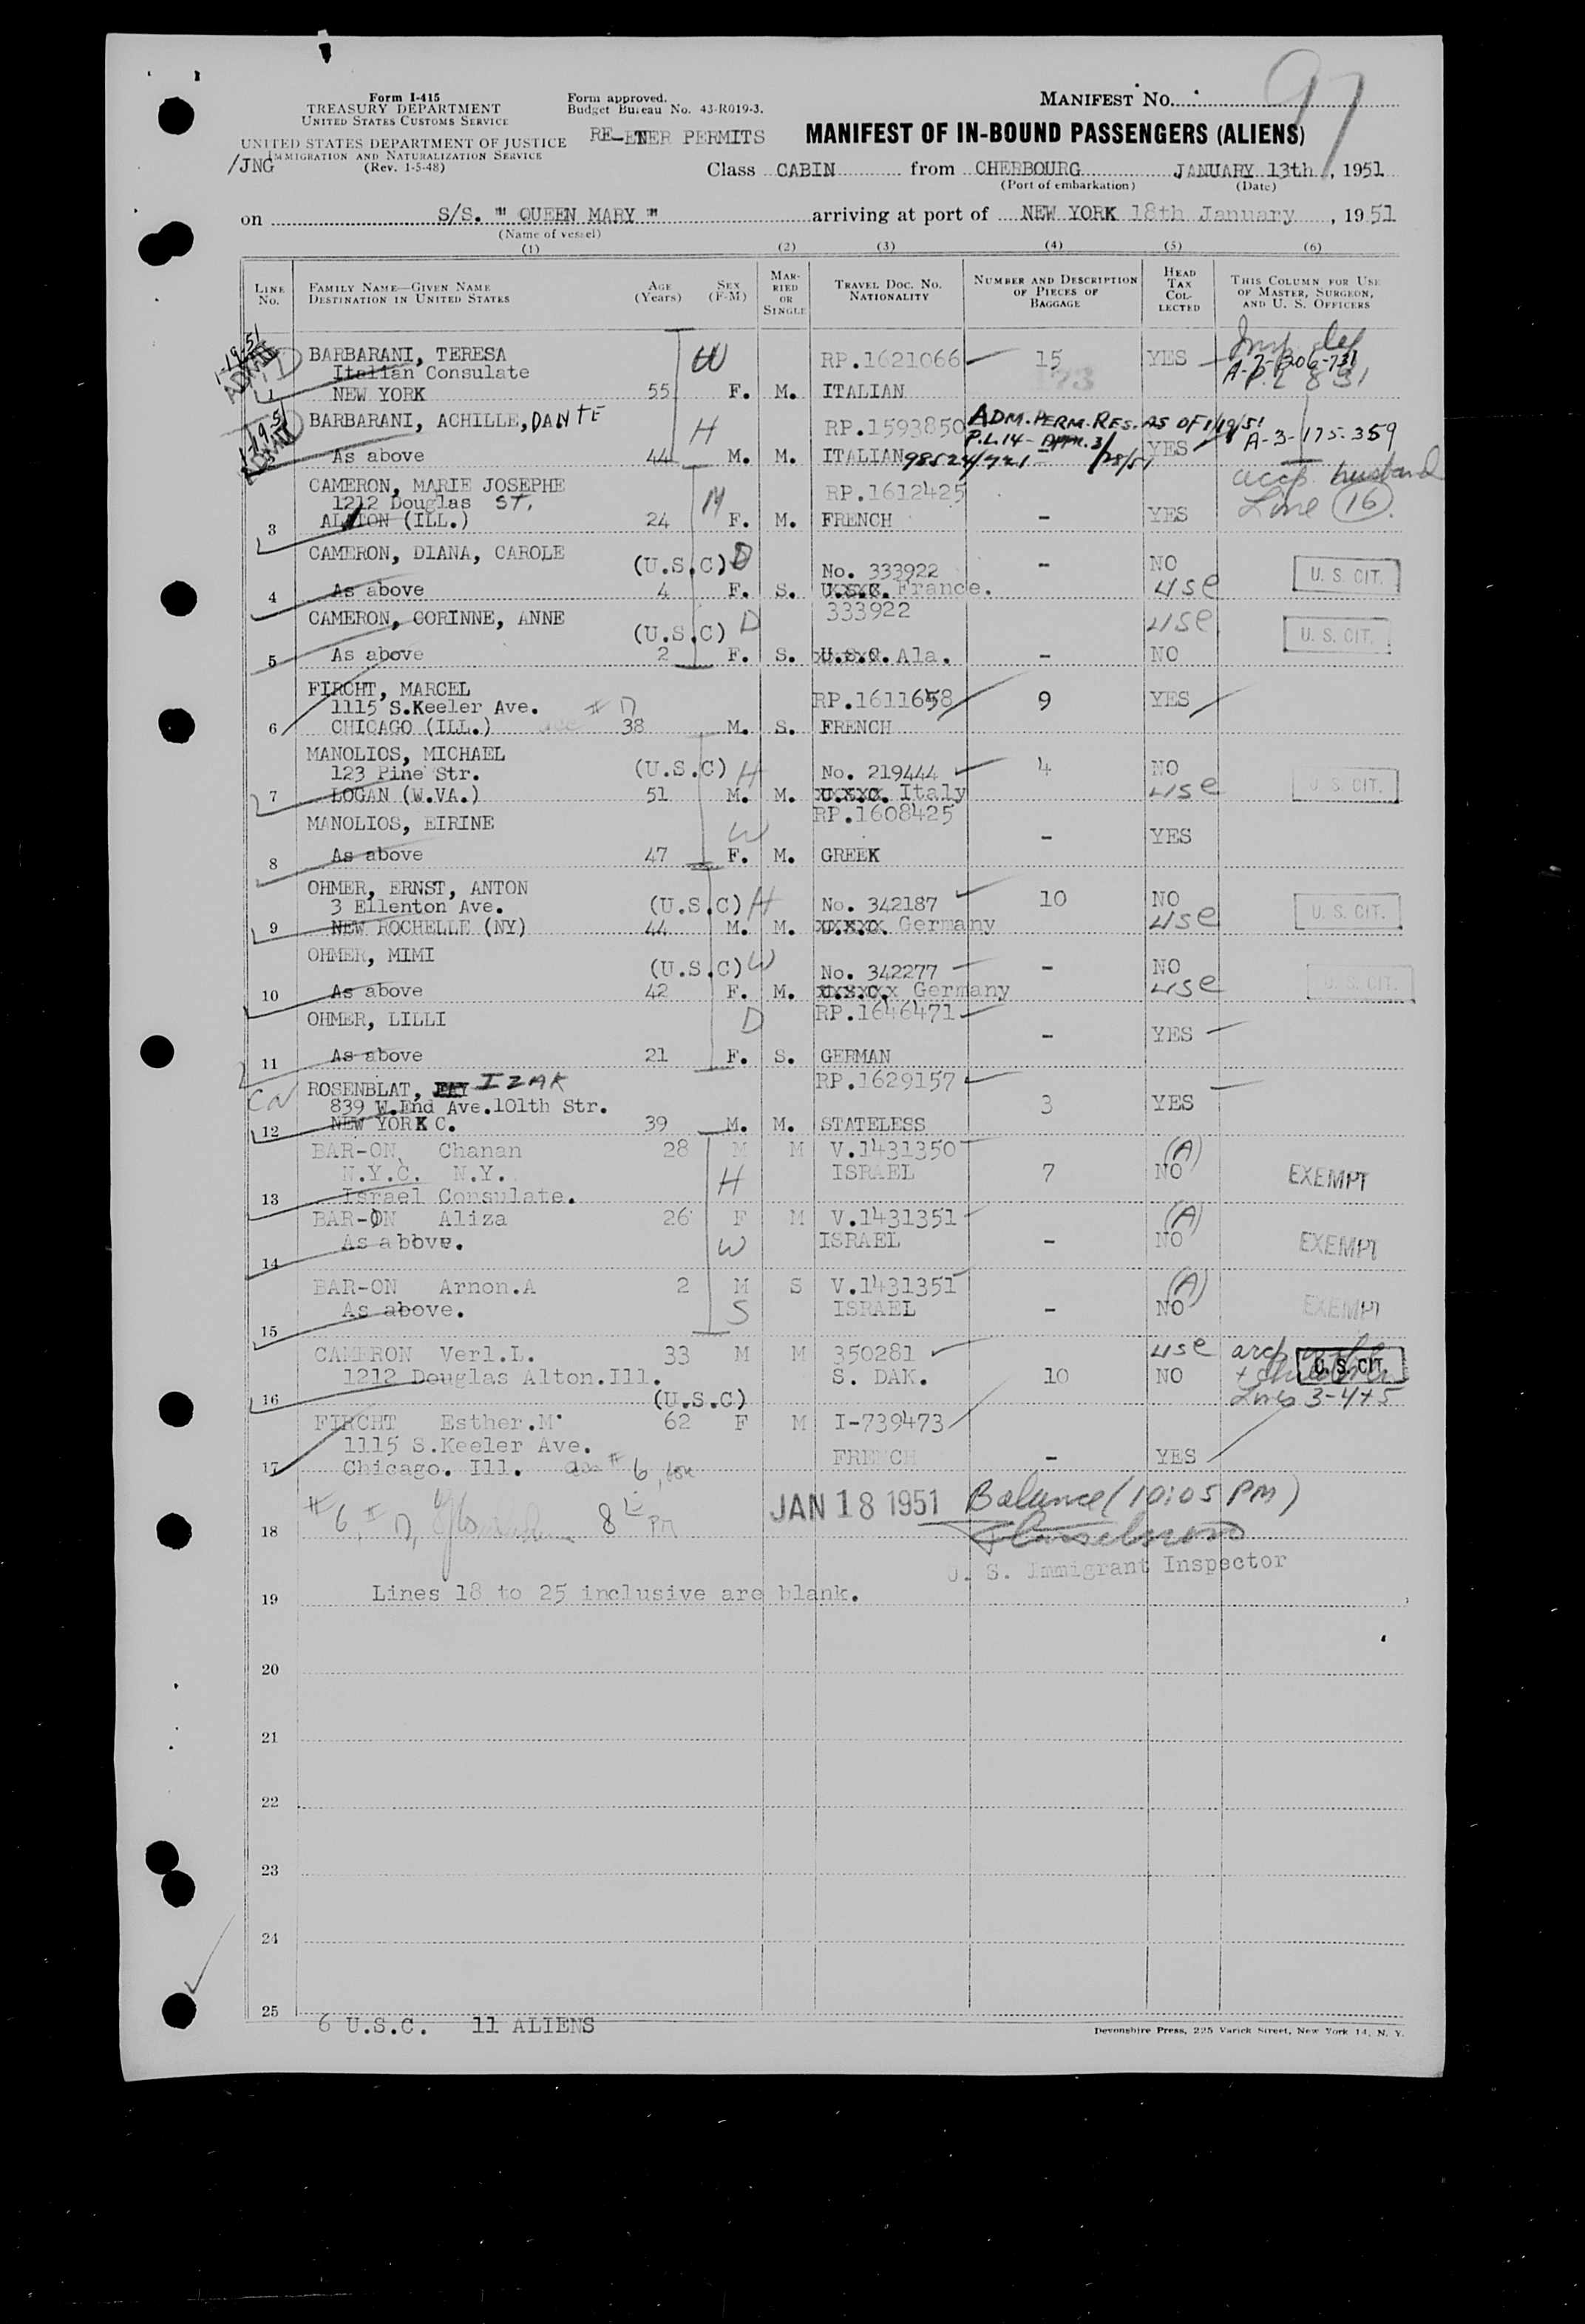 Form I-415
TREASURY DEPARTMENT
UNITED STATES CUSTOMS SERVICE
UNITED STATES DEPARTMENT OF JUSTICE
IMMIGRATION AND NATURALIZATION SERVICE
(Rev. 1-5-48)
/JNG
Form approved.
Budget Bureau No. 43-R019-3.
RE-ETNER PERMITS
MANIFEST NO. 97
MANIFEST OF IN-BOUND PASSENGERS (ALIENS)
Class CABIN from CHERBOURG JANUARY 13th, 1951
(Port of embarkation) (Date)
on S/S. " QUEEN MARY " arriving at port of NEW YORK 18th January, 1951
(Name of vessel)
(1) (2) (3) (4) (5) (6)
LINE No. FAMILY NAME—GIVEN NAME DESTINATION IN UNITED STATES AGE (Years) SEX (F-M) MARRIED OR SINGLE TRAVEL DOC. NO. NATIONALITY NUMBER AND DESCRIPTION OF PIECES OF BAGGAGE HEAD TAX COLLECTED THIS COLUMN FOR USE OF MASTER, SURGEON, AND U. S. OFFICERS
1-19-51 ADMIT
BARBARANI, TERESA W RP.1621066 15 YES
Italian Consulate 173 A-7-206-731
1 NEW YORK 55 F. M. ITALIAN P.L 831
1-19-51 ADMIT
BARBARANI, ACHILLE, DANTE H RP.1593850 ADM. PERM. RES. AS OF 1/19/51
P.L.14 - APPR. 3/28/51 YES A-3-175-359
As above 44 M. M. ITALIAN 98524/721
CAMERON, MARIE JOSEPHE RP.1612425 accp. husband
1212 Douglas ST. Line (16).
3 ALTON (ILL.) 24 F. M. FRENCH - YES
CAMERON, DIANA, CAROLE (U.S.C) D No. 333922 - NO U. S. CIT.
4 As above 4 F. S. U.S.C. France. USC
CAMERON, CORINNE, ANNE (U.S.C) D 333922 USC U. S. CIT.
5 As above 2 F. S. U.S.C. Ala. - NO
FIRCHT, MARCEL RP.1611658 9 YES
1115 S.Keeler Ave. #17
6 CHICAGO (ILL.) 38 M. S. FRENCH
MANOLIOS, MICHAEL (U.S.C) H No. 219444 4 NO U. S. CIT.
123 Pine Str.
7 LOGAN (W.VA.) 51 M. M. U.S.C. Italy USC
MANOLIOS, EIRINE W RP.1608425 - YES
8 As above 47 F. M. GREEK
OHMER, ERNST, ANTON (U.S.C) H No. 342187 10 NO U. S. CIT.
3 Ellenton Ave.
9 NEW ROCHELLE (NY) 44 M. M. Germany USC
OHMER, MIMI (U.S.C) W No. 342277 - NO U. S. CIT.
10 As above 42 F. M. U.S.C. Germany USC
OHMER, LILLI D RP.1646471 - YES
11 As above 21 F. S. GERMAN
ROSENBLAT, IZAK RP.1629157
839 W.End Ave.101th Str. 3 YES
12 NEW YORK C. 39 M. M. STATELESS
BAR-ON, Chanan 28 M M V.1431350 (A)
N.Y.C. N.Y. H ISRAEL 7 NO EXEMPT
13 Israel Consulate.
BAR-ON Aliza 26 F M V.1431351 (A)
As above. W ISRAEL - NO EXEMPT
14
BAR-ON Arnon.A 2 M S V.1431351 (A)
As above. S ISRAEL - NO EXEMPT
15
CAMERON Verl.L. 33 M M 350281 USC
1212 Douglas Alton.Ill. S. DAK. 10 NO U. S. CIT.
16 (U.S.C) Lines 3-4+5
FIRCHT Esther.M 62 F M I-739473
1115 S.Keeler Ave. FRENCH - YES
17 Chicago. Ill. #6
#6, #17, 8 PM JAN 18 1951 Balance (10:05 PM)
18
U. S. Immigrant Inspector
19 Lines 18 to 25 inclusive are blank.
20
21
22
23
24
25
6 U.S.C. 11 ALIENS
Devonshire Press, 225 Varick Street, New York 14, N. Y.